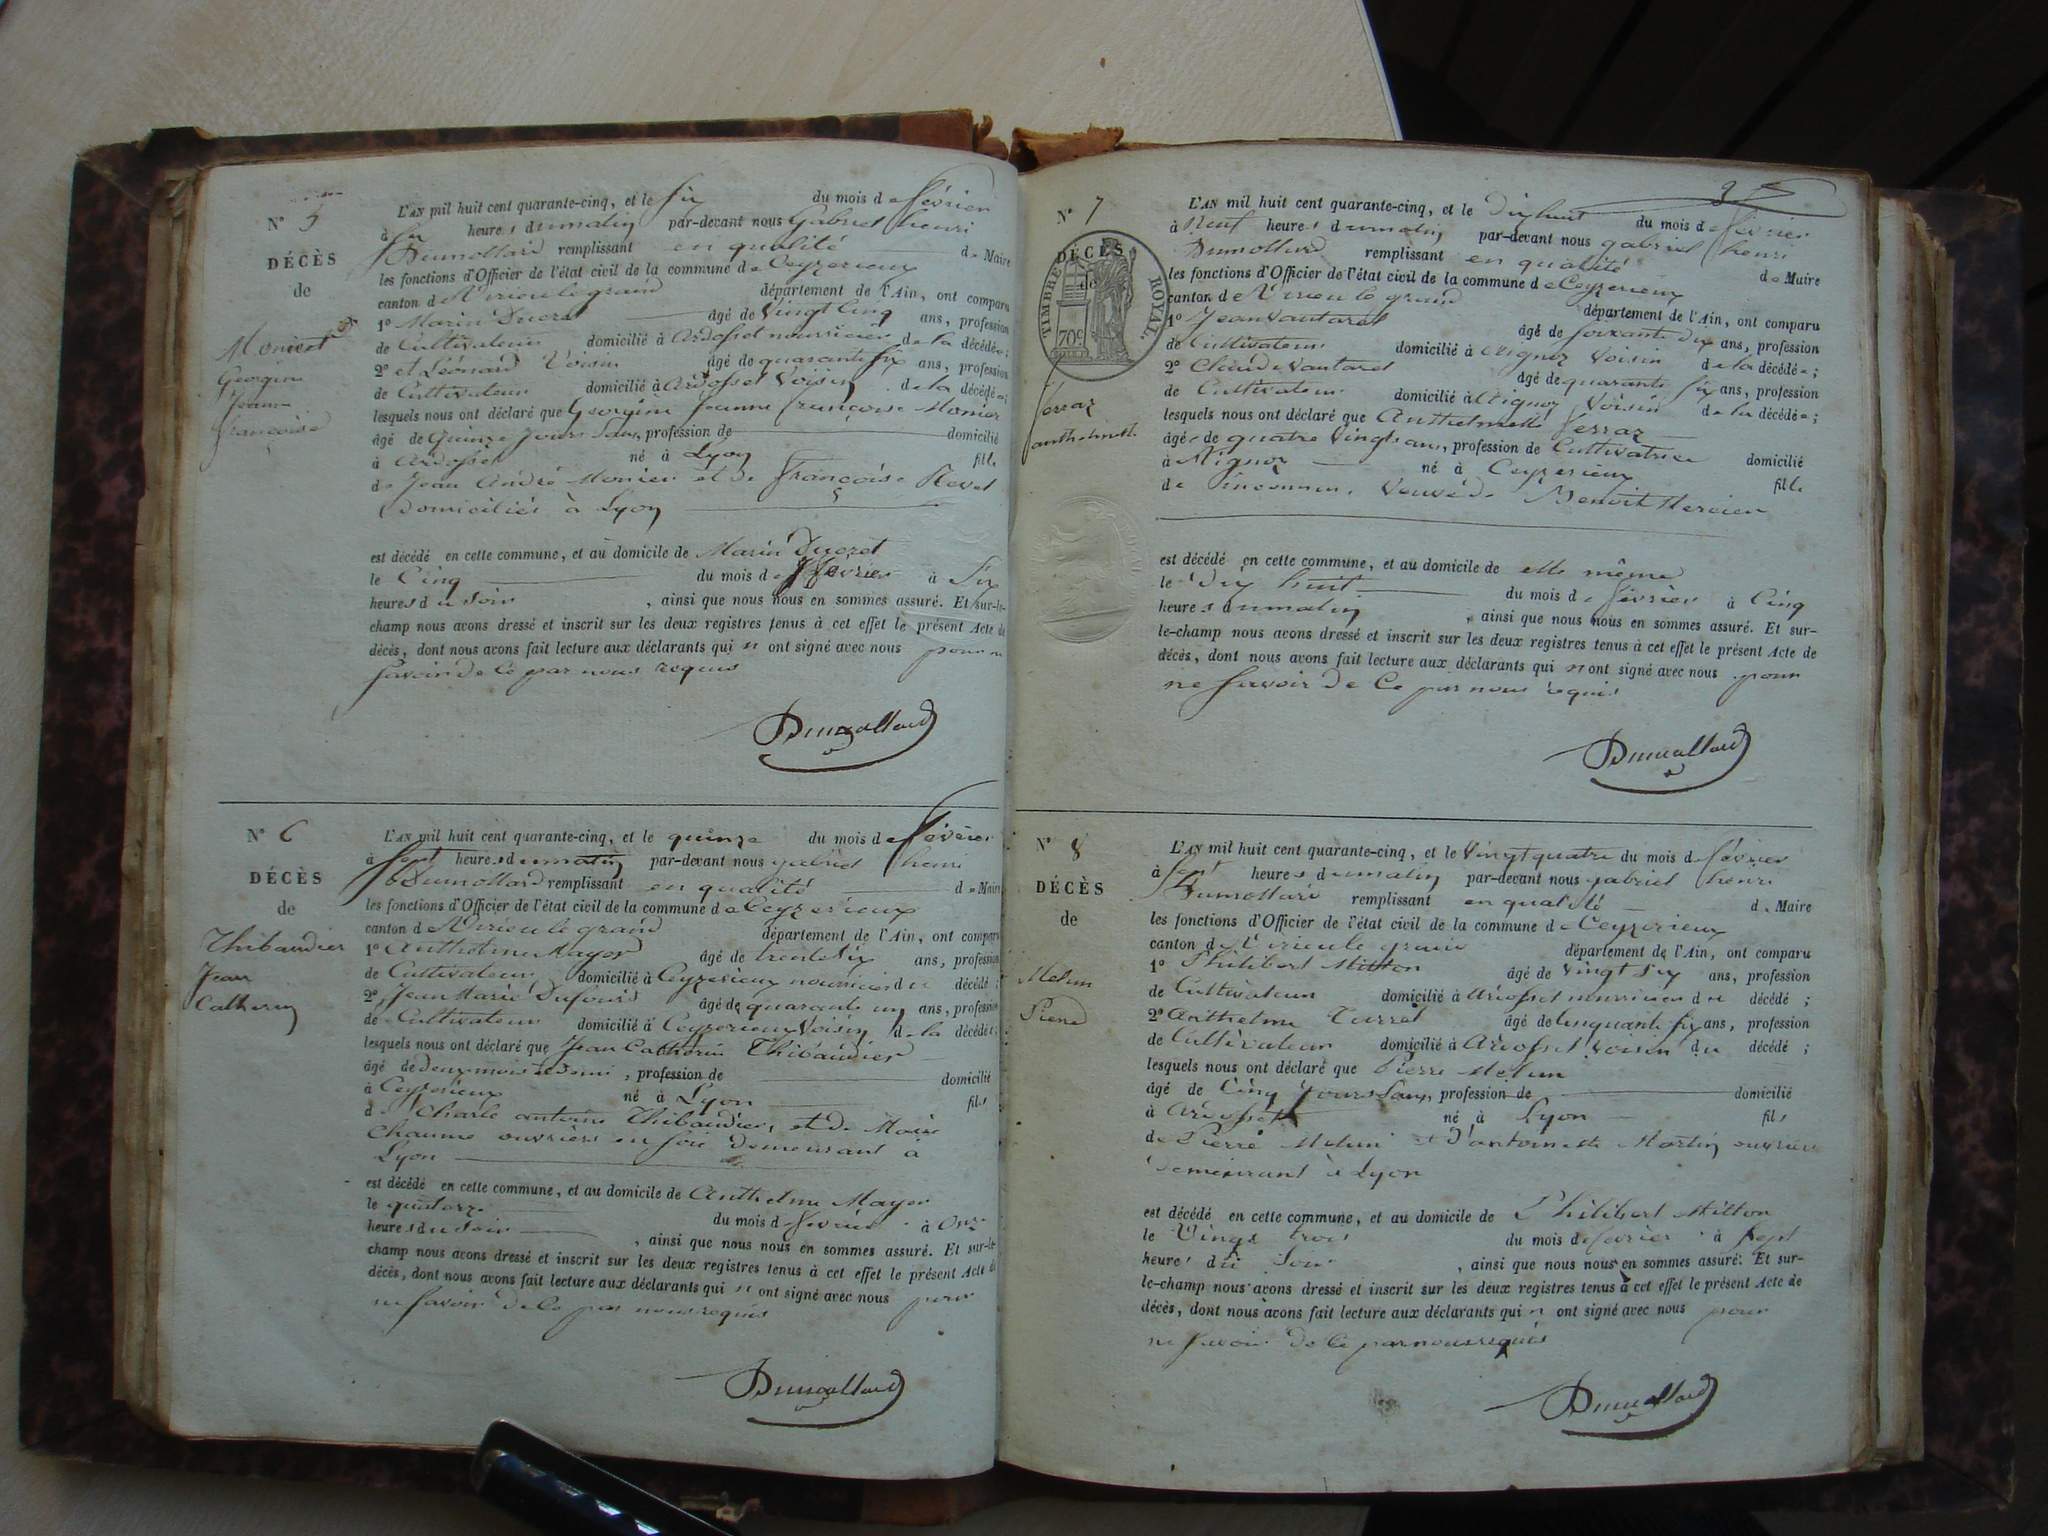 N° 5
DÉCÈS
de
Monier
Georgine
Jeanne
françoise
L'AN mil huit cent quarante-cinq, et le six du mois de février
à six heures du matin par-devant nous Gabriel henri
Dumollard remplissant en qualité de Maire
les fonctions d'Officier de l'état civil de la commune de Ceyzerieux
canton de Virieu le grand département de l'Ain, ont comparu
1° Marin Ducret âgé de Vingt Cinq ans, profession
de Cultivateur domicilié à Ardosset nourricier de la décédée;
2° et Léonard Voisin âgé de quarante six ans, profession
de Cultivateur domicilié à Ardosset Voisin de la décédée;
lesquels nous ont déclaré que Georgine Jeanne françoise Monier
âgé de Quinze Jours Sans, profession de domicilié
à Ardosset né à Lyon fille
de Jean André Monier et de françoise Revel
Domiciliés à Lyon
est décédé en cette commune, et au domicile de Marin Ducret
le Cinq du mois de février à Six
heures du soir, ainsi que nous nous en sommes assuré. Et sur-le-
champ nous avons dressé et inscrit sur les deux registres tenus à cet effet le présent Acte de
décès, dont nous avons fait lecture aux déclarants qui n ont signé avec nous pour ne
savoir de Ce par nous requis
Dumollard
N° 6
DÉCÈS
de
Thibaudier
Jean
Catherin
L'AN mil huit cent quarante-cinq, et le quinze du mois de février
à Sept heures du matin par-devant nous gabriel henri
Dumollard remplissant en qualité de Maire
les fonctions d'Officier de l'état civil de la commune de Ceyzerieux
canton de Virieu le grand département de l'Ain, ont comparu
1° Anthelme Mayor âgé de trente Six ans, profession
de Cultivateur domicilié à Ceyzerieux nourricier du décédé;
2° Jean Marie Dufour âgé de quarante un ans, profession
de Cultivateur domicilié à Ceyzerieux Voisin de la décédée;
lesquels nous ont déclaré que Jean Catherin Thibaudier
âgé de deux mois et demi, profession de domicilié
à Ceyzerieux né à Lyon fils
de Charle antoine Thibaudier, et de Marie
Chaume ouvriers en soie Demeurant à
Lyon
est décédé en cette commune, et au domicile de Anthelme Mayor
le quatorze du mois de février à Onze
heures du soir, ainsi que nous nous en sommes assuré. Et sur-le-
champ nous avons dressé et inscrit sur les deux registres tenus à cet effet le présent Acte de
décès, dont nous avons fait lecture aux déclarants qui n ont signé avec nous pour
ne savoir de Ce par nous requis
Dumollard
N° 7
DÉCÈS
de
TIMBRE ROYAL.
70c
ferraz
anthelmette
L'AN mil huit cent quarante-cinq, et le Dix huit du mois de février
à Neuf heures du matin par-devant nous gabriel henri
Dumollard remplissant en qualité de Maire
les fonctions d'Officier de l'état civil de la commune de Ceyzerieux
canton de Virieu le grand département de l'Ain, ont comparu
1° Jean Vautaret âgé de soixante dix ans, profession
de Cultivateur domicilié à Aignoz Voisin de la décédée;
2° Claude Vautaret âgé de quarante six ans, profession
de Cultivateur domicilié à Aignoz Voisin de la décédée;
lesquels nous ont déclaré que Anthelmette ferraz
âgée de quatre Vingts ans, profession de Cultivatrice domicilié
à Aignoz né à Ceyzerieux fille
de inconnu. Veuve de Benoit Mercier
est décédé en cette commune, et au domicile de elle même
le Dix huit du mois de février à Cinq
heures du matin, ainsi que nous nous en sommes assuré. Et sur-
le-champ nous avons dressé et inscrit sur les deux registres tenus à cet effet le présent Acte de
décès, dont nous avons fait lecture aux déclarants qui n ont signé avec nous pour
ne savoir de Ce par nous requis
Dumollard
N° 8
DÉCÈS
de
Melun
Pierre
L'AN mil huit cent quarante-cinq, et le Vingt quatre du mois de février
à Sept heures du matin par-devant nous gabriel henri
Dumollard remplissant en qualité de Maire
les fonctions d'Officier de l'état civil de la commune de Ceyzerieux
canton de Virieu le grand département de l'Ain, ont comparu
1° Philibert Mitton âgé de Vingt Six ans, profession
de Cultivateur domicilié à Ardosset nourricier du décédé;
2° Anthelme Turrel âgé de Cinquante six ans, profession
de Cultivateur domicilié à Ardosset Voisin du décédé;
lesquels nous ont déclaré que Pierre Melun
âgé de Cinq Jours Sans, profession de domicilié
à Ardosset né à Lyon fils
de Pierre Melun et D'antoinette Martin ouvriers
demeurant à Lyon
est décédé en cette commune, et au domicile de Philibert Mitton
le Vingt trois du mois de février à Sept
heures du Soir, ainsi que nous nous en sommes assuré. Et sur-
le-champ nous avons dressé et inscrit sur les deux registres tenus à cet effet le présent Acte de
décès, dont nous avons fait lecture aux déclarants qui n ont signé avec nous pour
ne savoir de Ce par nous requis
Dumollard